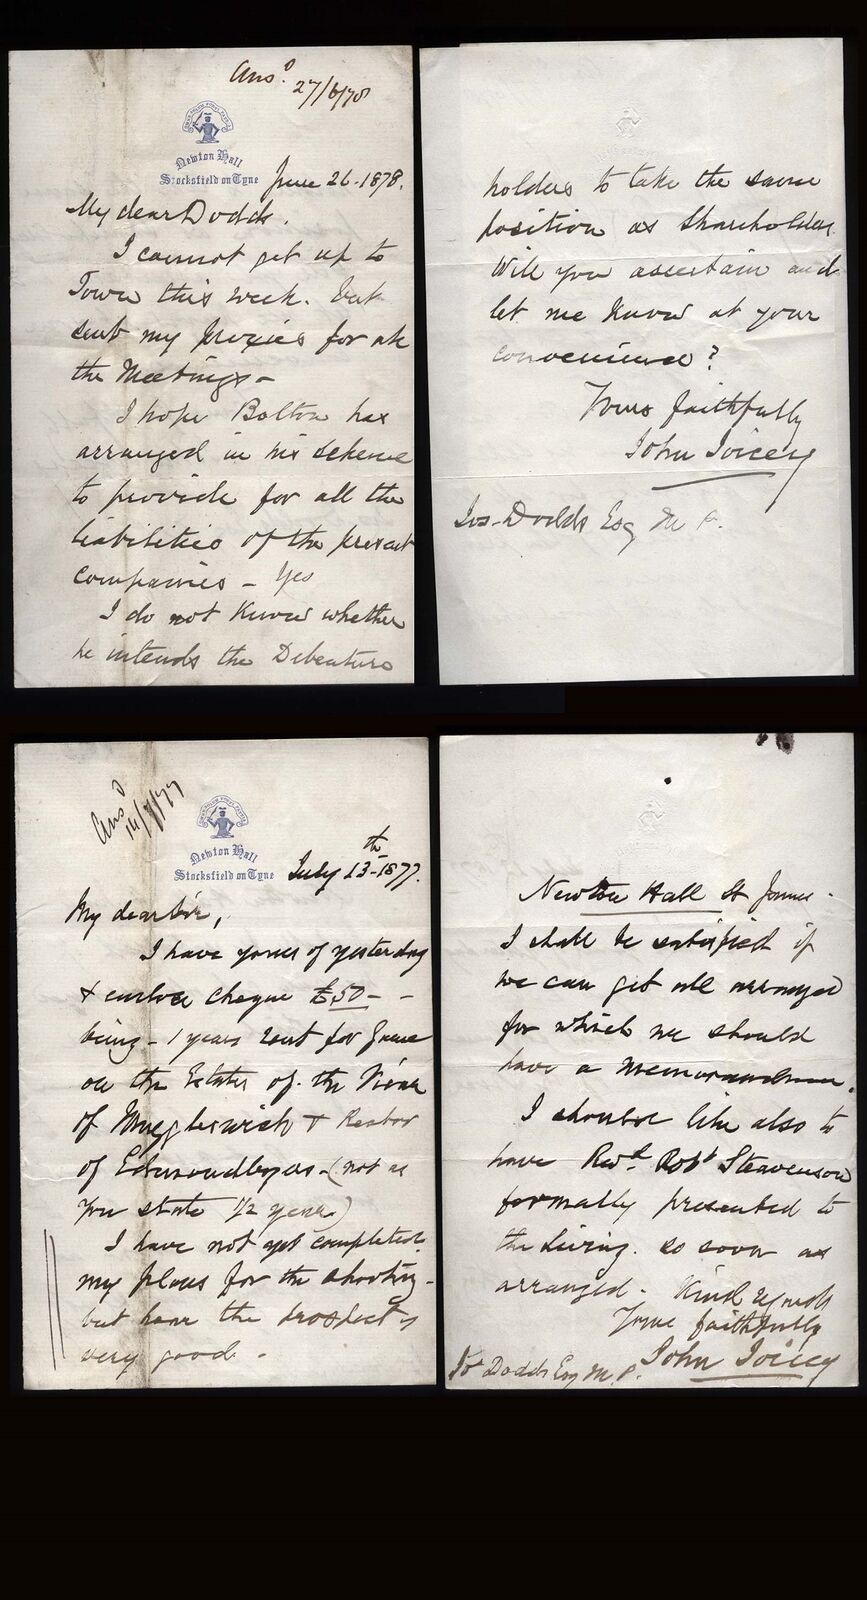 Ansd
27/6/78
Newton Hall
Stocksfield on Tyne
June 26. 1878.
My dear Dodds.
I cannot get up to
Town this week. but
sent my proxies for all
the Meetings -
I hope Bolton has
arranged in his scheme
to provide for all the
liabilities of the present
companies - Yes
I do not know whether
he intends the Debenture
holders to take the same
position as Shareholders
Will you ascertain and
let me know at your
convenience?
Yours faithfully
John Joicey
Jos. Dodds Esq M P.
Ansd
14/7/77
Newton Hall
Stocksfield on Tyne
July 13th 1877.
My dear Sir,
I have yours of yesterday
& enclose cheque £50 - -
being - 1 years rent for Game
on the Estates of the Vicar
of Muggleswick & Rector
of Edmondbyers - (not as
you state 1/2 year)
I have not yet completed
my plans for the shooting -
but hear the prospect is
very good -
Newton Hall St James -
I shall be satisfied if
we can get all arranged
for which we should
have a memorandum.
I should like also to
have Revd. Robt Steavenson
formally presented to
the Living. so soon as
arranged - Kind regards
Yours faithfully
John Joicey
Jos Dodds Esq M. P.